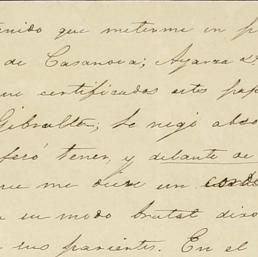 enido que meterme en p
de Casanova; Ayarza
ue certificados estos pap
Gibraltar; se negó abso
feró tener, y delante de
que me diese un
a su modo brutal dixo
a sus parientes. En el